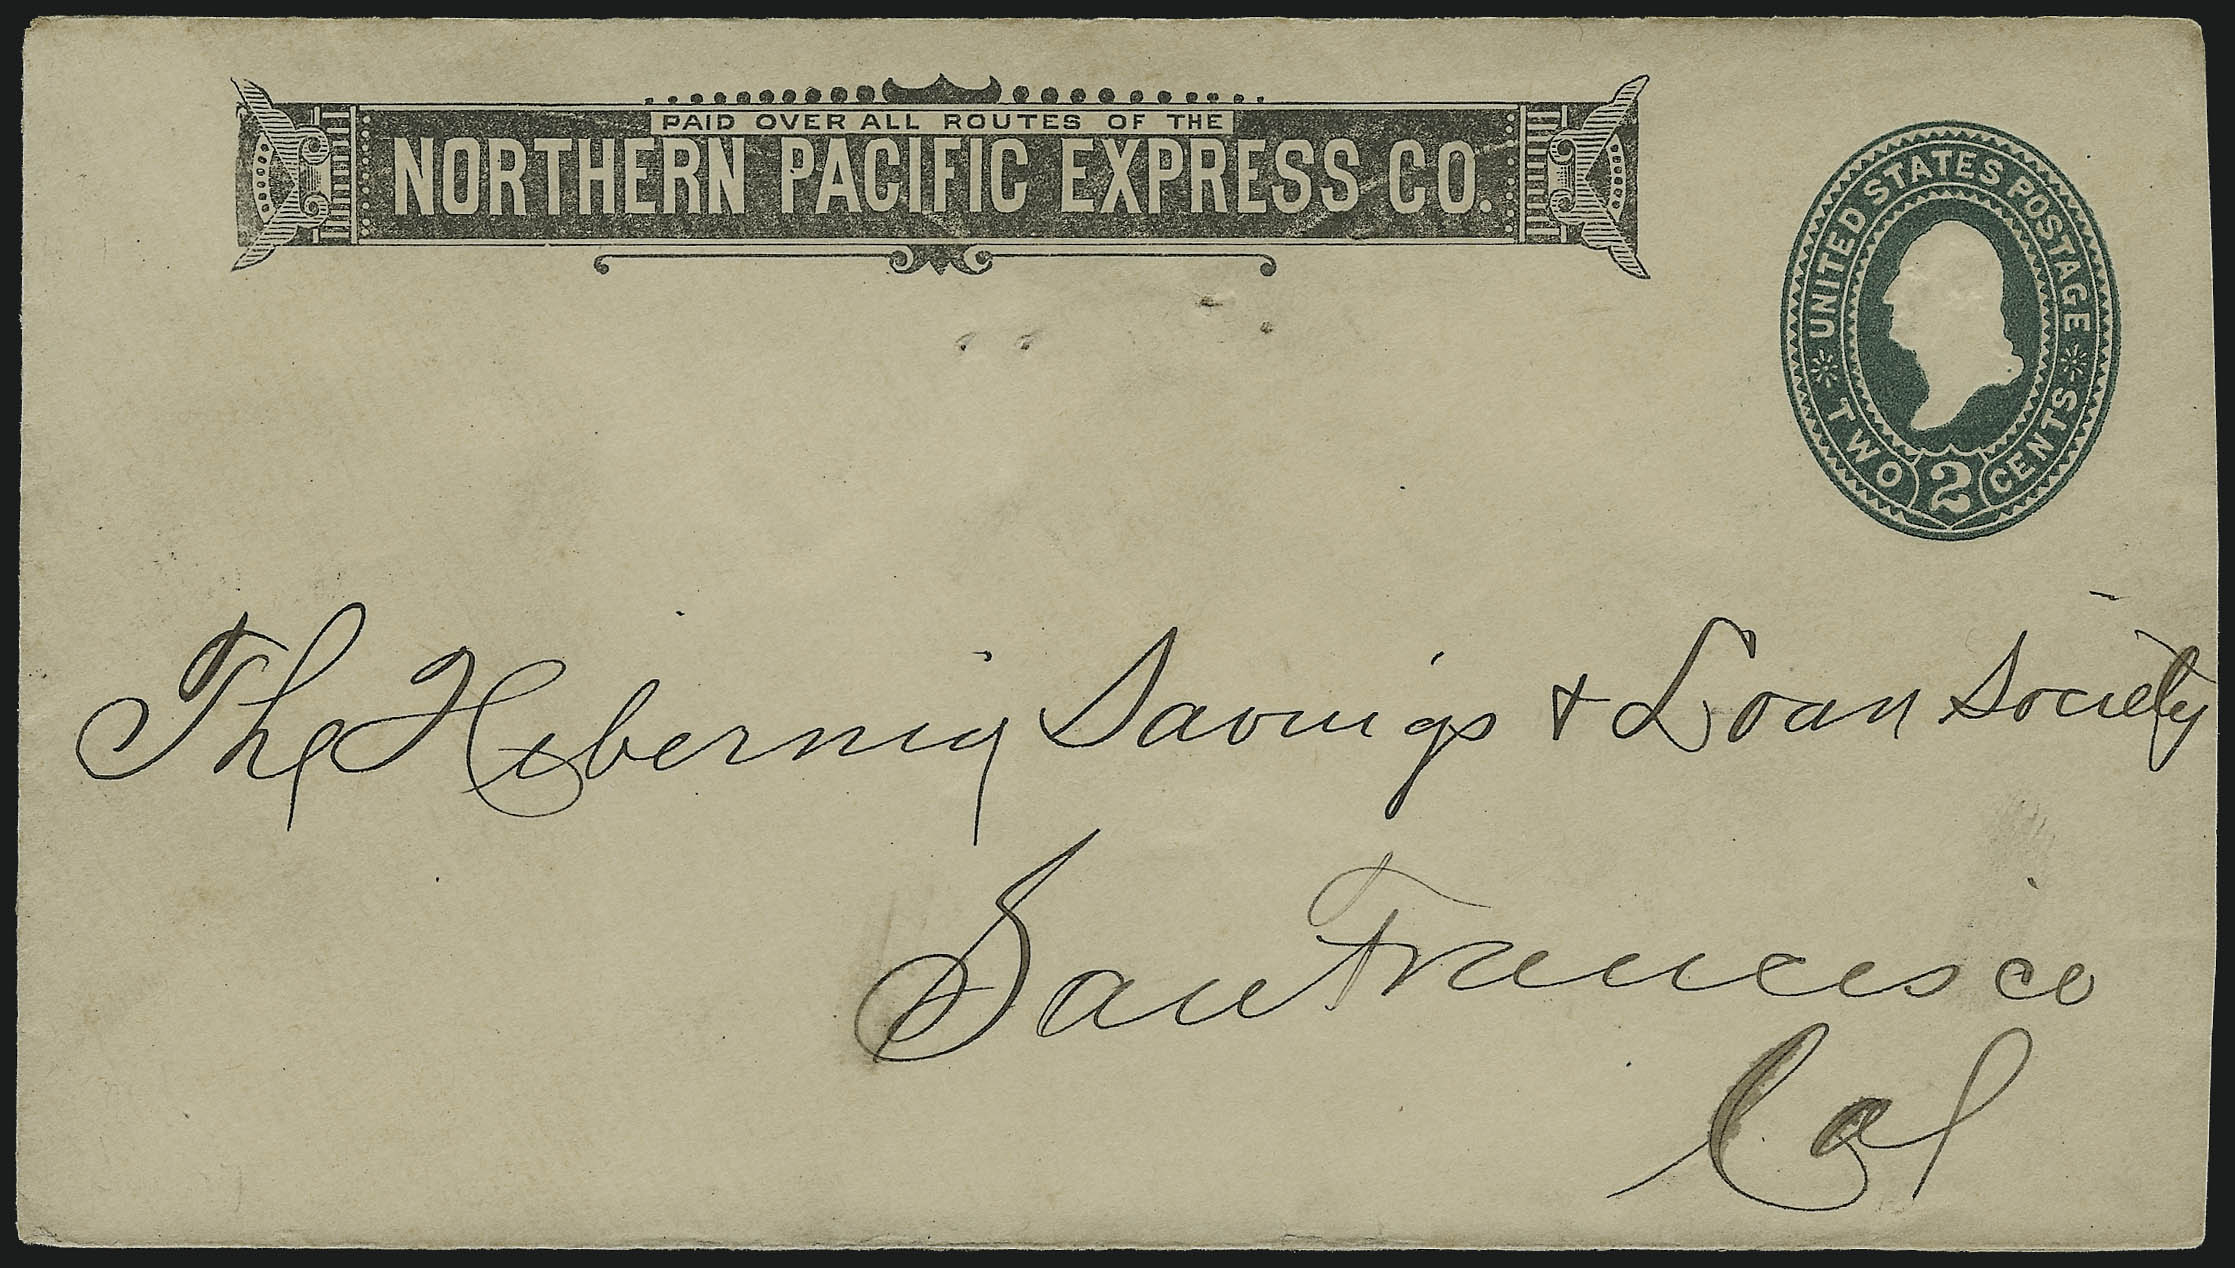 PAID OVER ALL ROUTES OF THE
NORTHERN PACIFIC EXPRESS CO.
UNITED STATES POSTAGE
TWO 2 CENTS
The Hibernia Savings & Loan Society
San Francisco
Cal